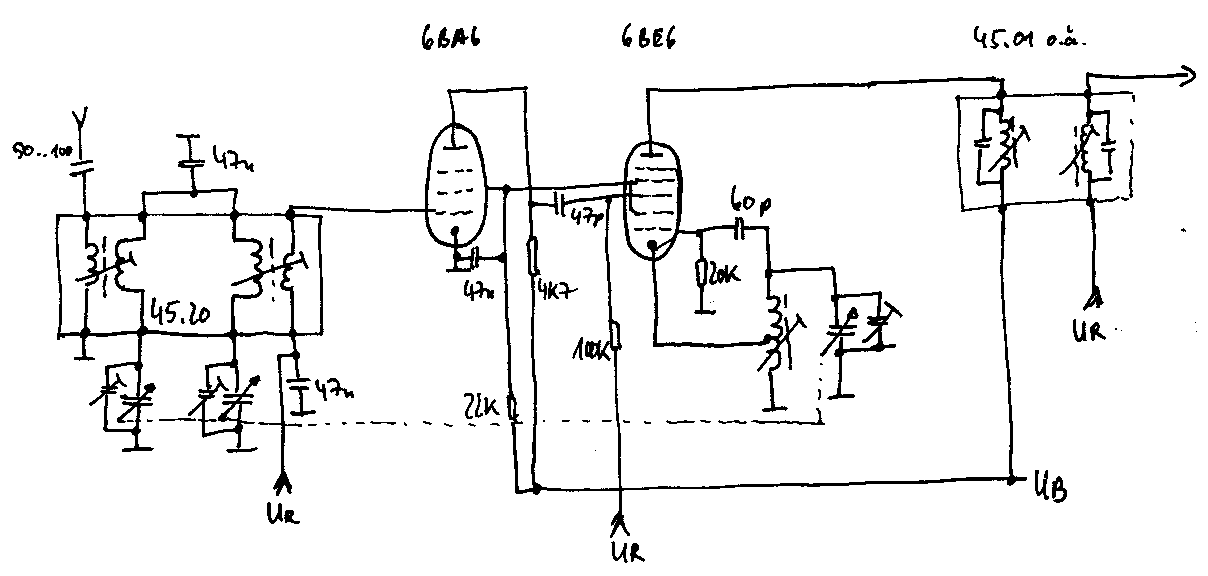 6BA6
6BE6
45.01 o.ä.
50..100
47n
60p
47p
47n
4K7
20K
45.20
100K
47n
22K
UR
UR
UR
UB